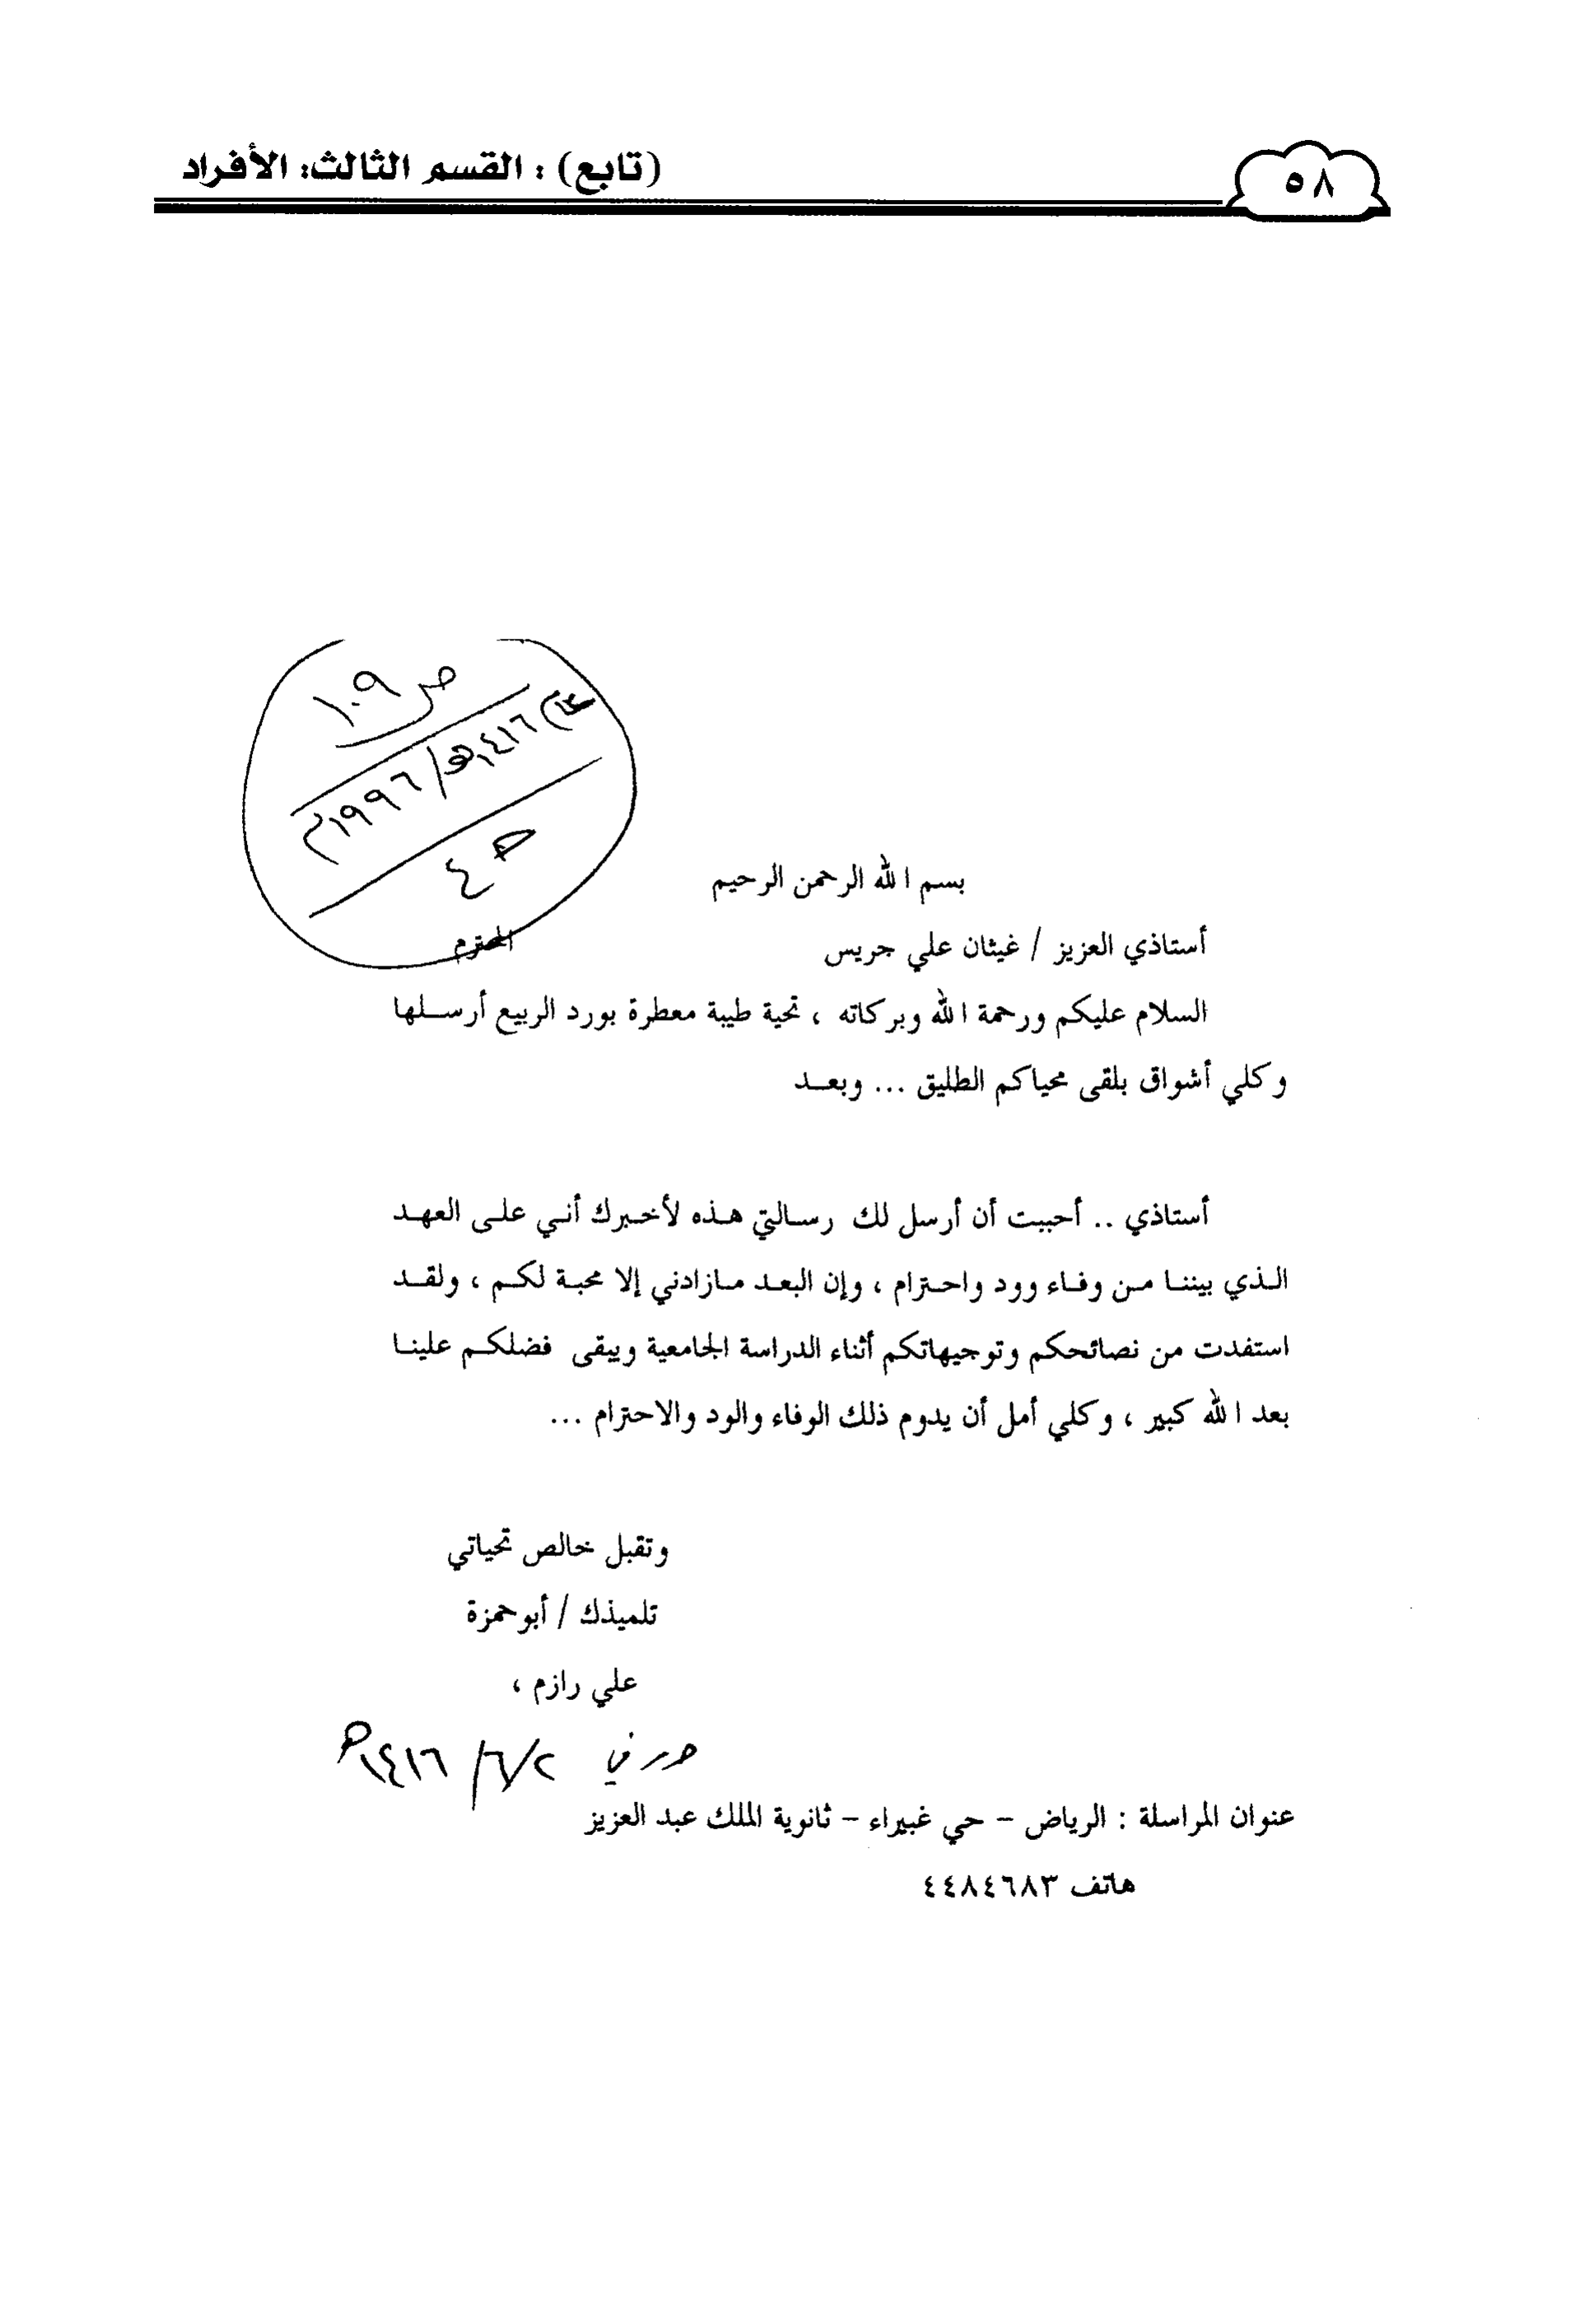 ٥٨
(تابع) : القسم الثالث: الأفراد
ص ١٠٩
عام ١٤١٦هـ/١٩٩٦م
٤
بسم الله الرحمن الرحيم
أستاذي العزيز / غيثان علي جريس المحترم
السلام عليكم ورحمة الله وبركاته ، تحية طيبة معطرة بورد الربيع أرسلها
وكلي أشواق بلقى محياكم الطليق ... وبعد
أستاذي .. أحببت أن أرسل لك رسالتي هذه لأخبرك أني على العهد
الذي بيننا من وفاء وود واحترام ، وإن البعد مازادني إلا محبة لكم ، ولقد
استفدت من نصائحكم وتوجيهاتكم أثناء الدراسة الجامعية ويبقى فضلكم علينا
بعد الله كبير ، وكلي أمل أن يدوم ذلك الوفاء والود والاحترام ...
وتقبل خالص تحياتي
تلميذك / أبوحمزة
علي رازم ،
حرر في ٢/٦/١٤١٦هـ
عنوان المراسلة : الرياض - حي غبيراء - ثانوية الملك عبد العزيز
هاتف ٤٤٨٤٦٨٣